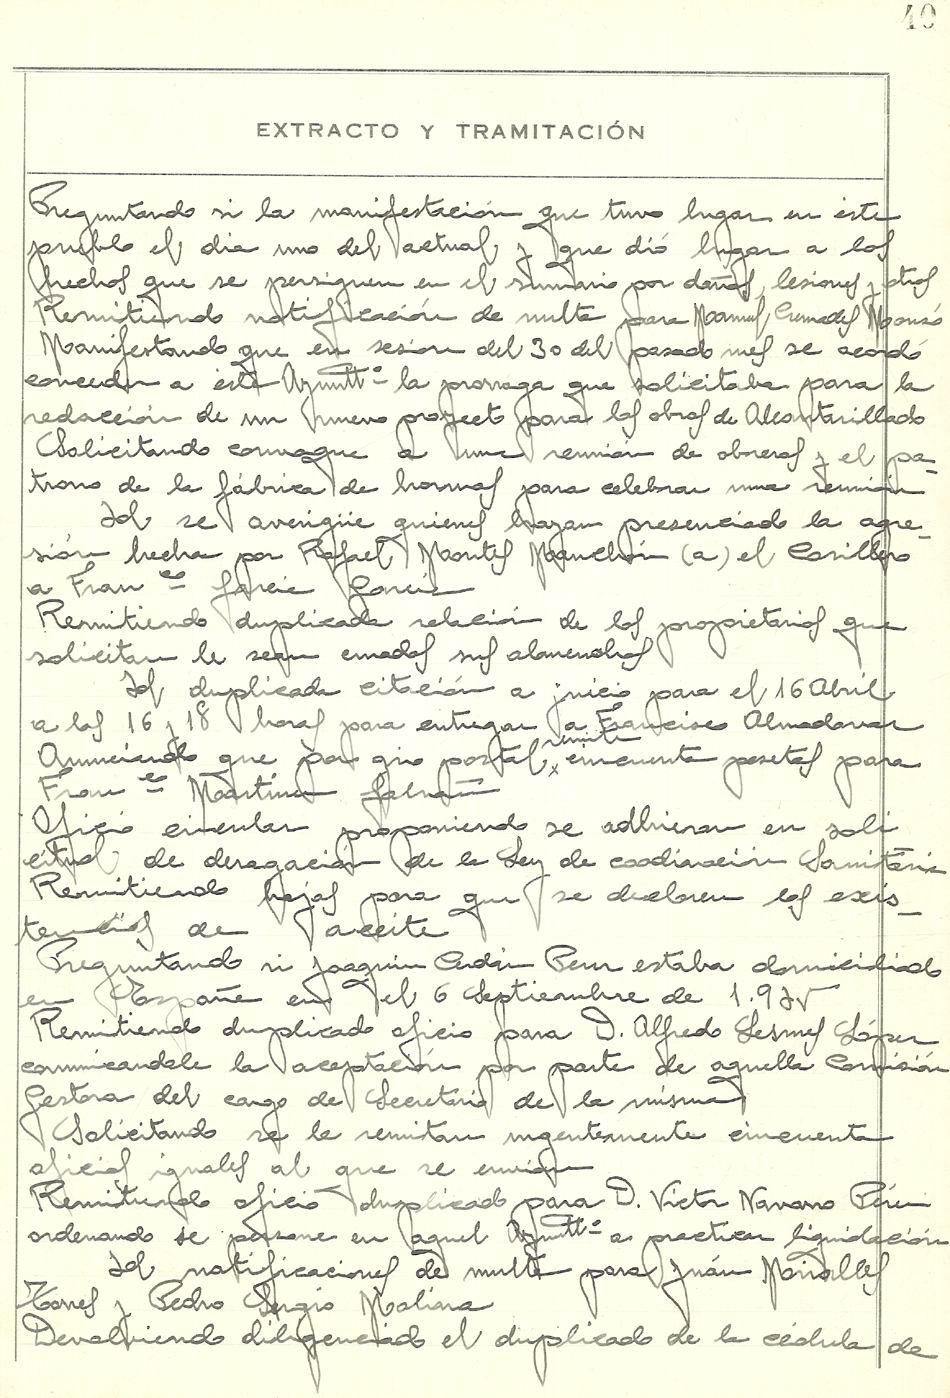 40
EXTRACTO Y TRAMITACIÓN
Preguntando si la manifestación que tuvo lugar en este
pueblo el dia uno del actual y que dió lugar a los
hechos que se persiguen en el sumario por daños, lesiones y otros
Remitiendo notificación de multa para Manuel Cremades Monzó
Manifestando que en sesion del 30 del pasado mes se acordó
conceder a este Ayuntto la prorroga que solicitaba para la
redacción de un nuevo proyecto para las obras de Alcantarillado
Solicitando convoque a una reunión de obreros y el pa-
trono de la fábrica de hormas para celebrar una reunión
Id se averigüe quienes hayan presenciado la agre-
sión hecha por Rafael Montes Manchón (a) el Casillero
a Franco Garcia Garcia
Remitiendo duplicada relación de los propietarios que
solicitan le sean sus almendros
Id duplicada citación a juicio para el 16 Abril
a las 16 y 18 horas para entregar a Francisco Almodovar
Anunciando que por giro postal remite cincuenta pesetas para
Franco Martinez
Oficio circular proponiendo se adhieran en soli
citud de derogación de la Ley de coodinación Sanitaria
Remitiendo hojas para que se declaren las exis-
tencias de aceite
Preguntando si Joaquin Cerdán Peur estaba domiciliado
en España en el 6 Septiembre de 1.935
Remitiendo duplicado oficio para D. Alfredo Lesmes López
comunicandole la aceptación por parte de aquella Comisión
Gestora del cargo de Secretario de la misma
Solicitando se le remitan urgentemente cincuenta
oficios iguales al que se envian
Remitiendo oficio duplicado para D. Victor Navarro Pérez
ordenando se persone en aquel Ayuntto a practicar liquidación
Id notificaciones de multa para Juán Miralles
Torres y Pedro Sergio Molina
Devolviendo diligenciado el duplicado de la cédula de